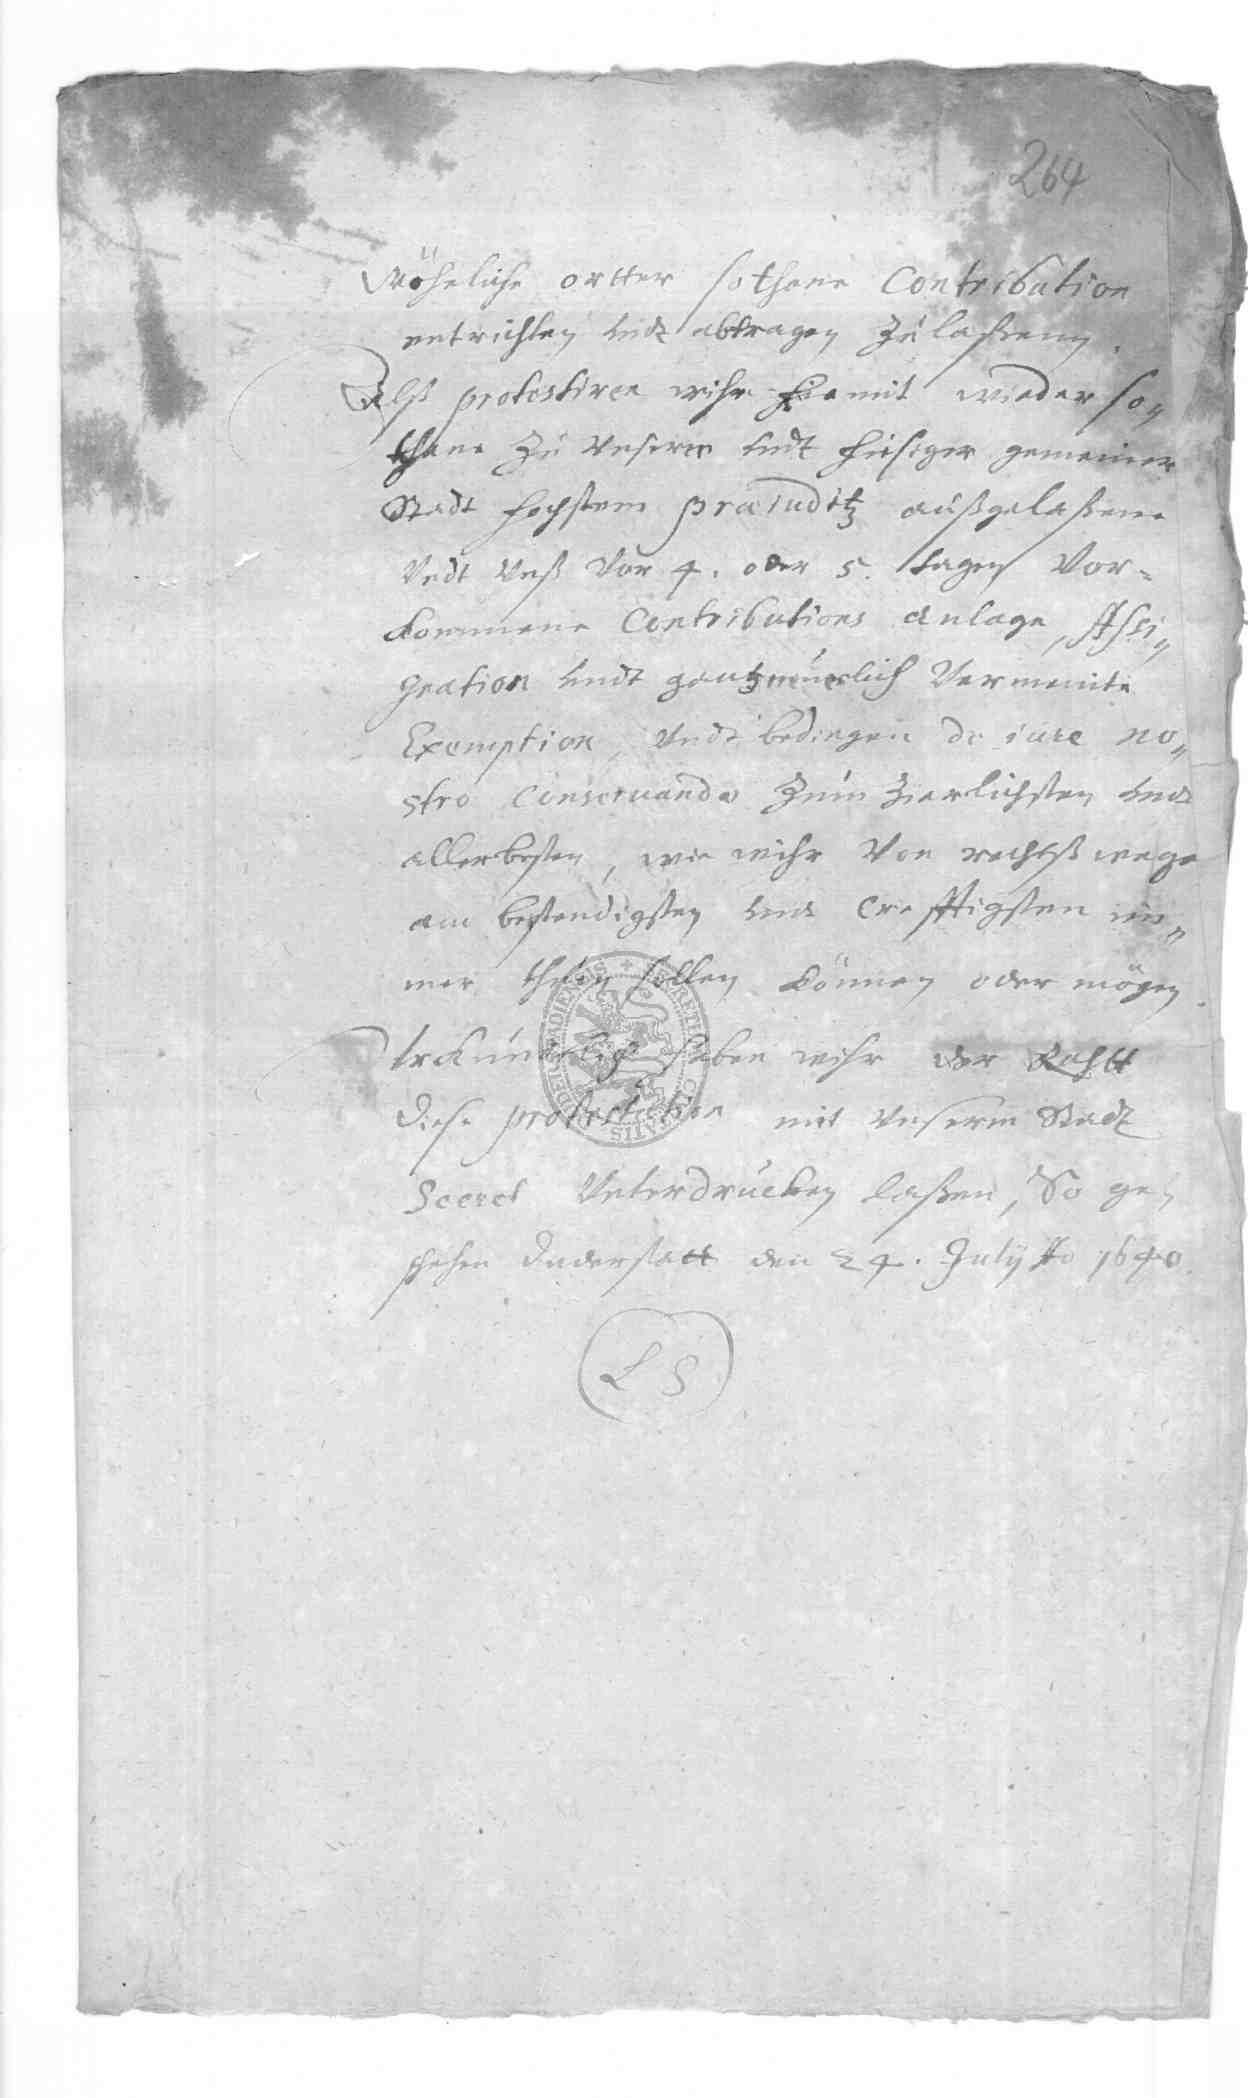 264
wöhnliche ortter sothane Contribution
entrichten undt abtragen zu laßenn.
Alß protestiren wihr hiemit wieder so„
thane zu unserm undt hiesiger gemeiner
Stadt hochstem præiuditz außgelaßene
Undt Unß vor 4. oder 5. tagen vor=
kommene Contributions anlage, Assi„
gnation undt vermeinte
Exemption, Undt bedingen de iure no„
stro conseruando zum zierlichsten und
allerbesten, wie wihr von rechtß wege
am bestendigsten und crefftigsten im„
mer thun sollen können oder mögen.
Urkundtlich haben wihr der Rahtt
diese protestation mit unserm Stadt
Secret Unterdrucken laßen, So ge„
schehen Duderstatt den 24. July Ao 1640.
L S
SECRETUM CIVITATIS DUDERSTADIENSIS